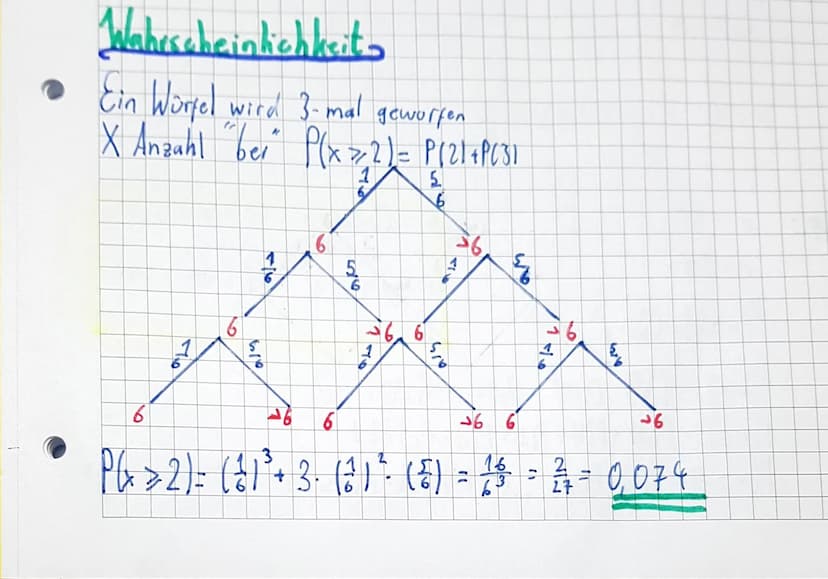 Wahrscheinlichkeit
Ein Würfel wird 3-mal geworfen
X Anzahl "bei" P(x ≥ 2) = P(2) + P(3)
1/6 5/6
6 ¬6
1/6 5/6 1/6 5/6
6 ¬6 6 ¬6
1/6 5/6 1/6 5/6 1/6 5/6
6 ¬6 6 ¬6 6 ¬6
P(x ≥ 2) = (1/6)³ + 3 · (1/6)² · (5/6) = 16/6³ = 2/27 = 0,074